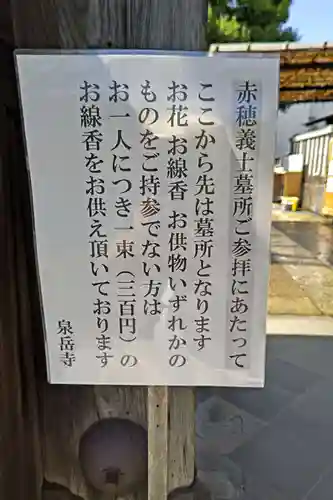 赤穂義士墓所ご参拝にあたって
ここから先は墓所となります
お花 お線香 お供物いずれかの
ものをご持参でない方は
お一人につき一束（三百円）の
お線香をお供え頂いております
泉岳寺